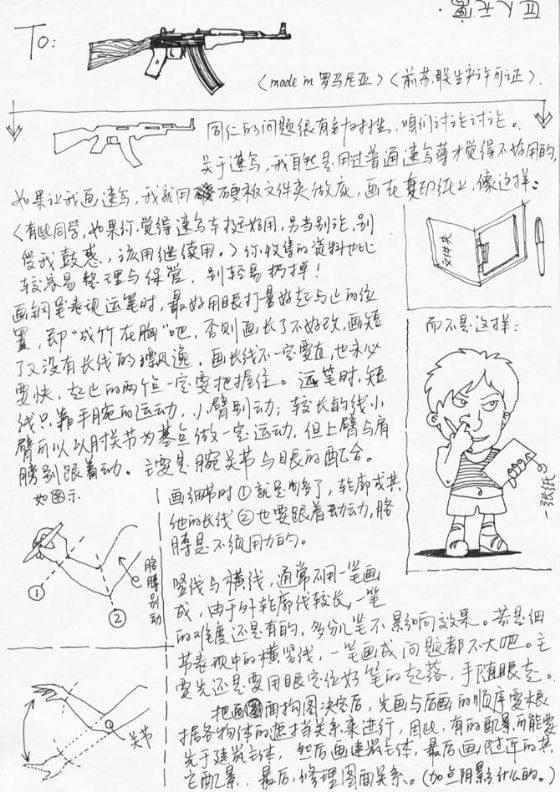 To:
(made in 罗马尼亚)(前苏联生产许可证)
同仁的问题很有针对性，咱们讨论讨论。
关于速写，我自然是用过普通速写薄才觉得不好用的，
如果让我画速写，我就用硬板文件夹做底，画在复印纸上，像这样：
(有些同学，如果你觉得速写本挺好用，另当别论，别
受我鼓惑，该用继续用。)你收集的资料也比
较容易整理与保管，别轻易扔掉！
文件夹
画钢笔表现运笔时，最好用眼打量好起与止的位
置，即"成竹在胸"吧，否则画长了不好改，画短
了又没有长线的飘逸，画长线不一定要直，也未必
要快，起止的两个点一定要把握住。运笔时，短
线只靠手腕的运动，小臂别动；较长的线小
臂可以以肘关节为基点做一定运动，但上臂与肩
膀别跟着动。主要是腕关节与眼的配合。
而不是这样：
张纸
如图示
①
②
胳膊别动
关节
画细节时①就足够了，轮廓或其
他的长线②也要跟着动动，胳
膊是不须用力的。
竖线与横线，通常不用一笔画
成，由于外轮廓线较长，一笔
的难度还是有的，多分几笔不影响效果。若是细
节表现中的横竖线，一笔画成问题都不大吧。主
要先还是要用眼定位好笔的起落，手随眼走。
把画面构图决定后，先画与后画的顺序要根
据各物体的遮挡关系来进行，因此，有的配景可能要
先于建筑主体，然后画建筑主体，最后画附近的其
它配景，最后，修理图面关系。(加点阴影什么的。)